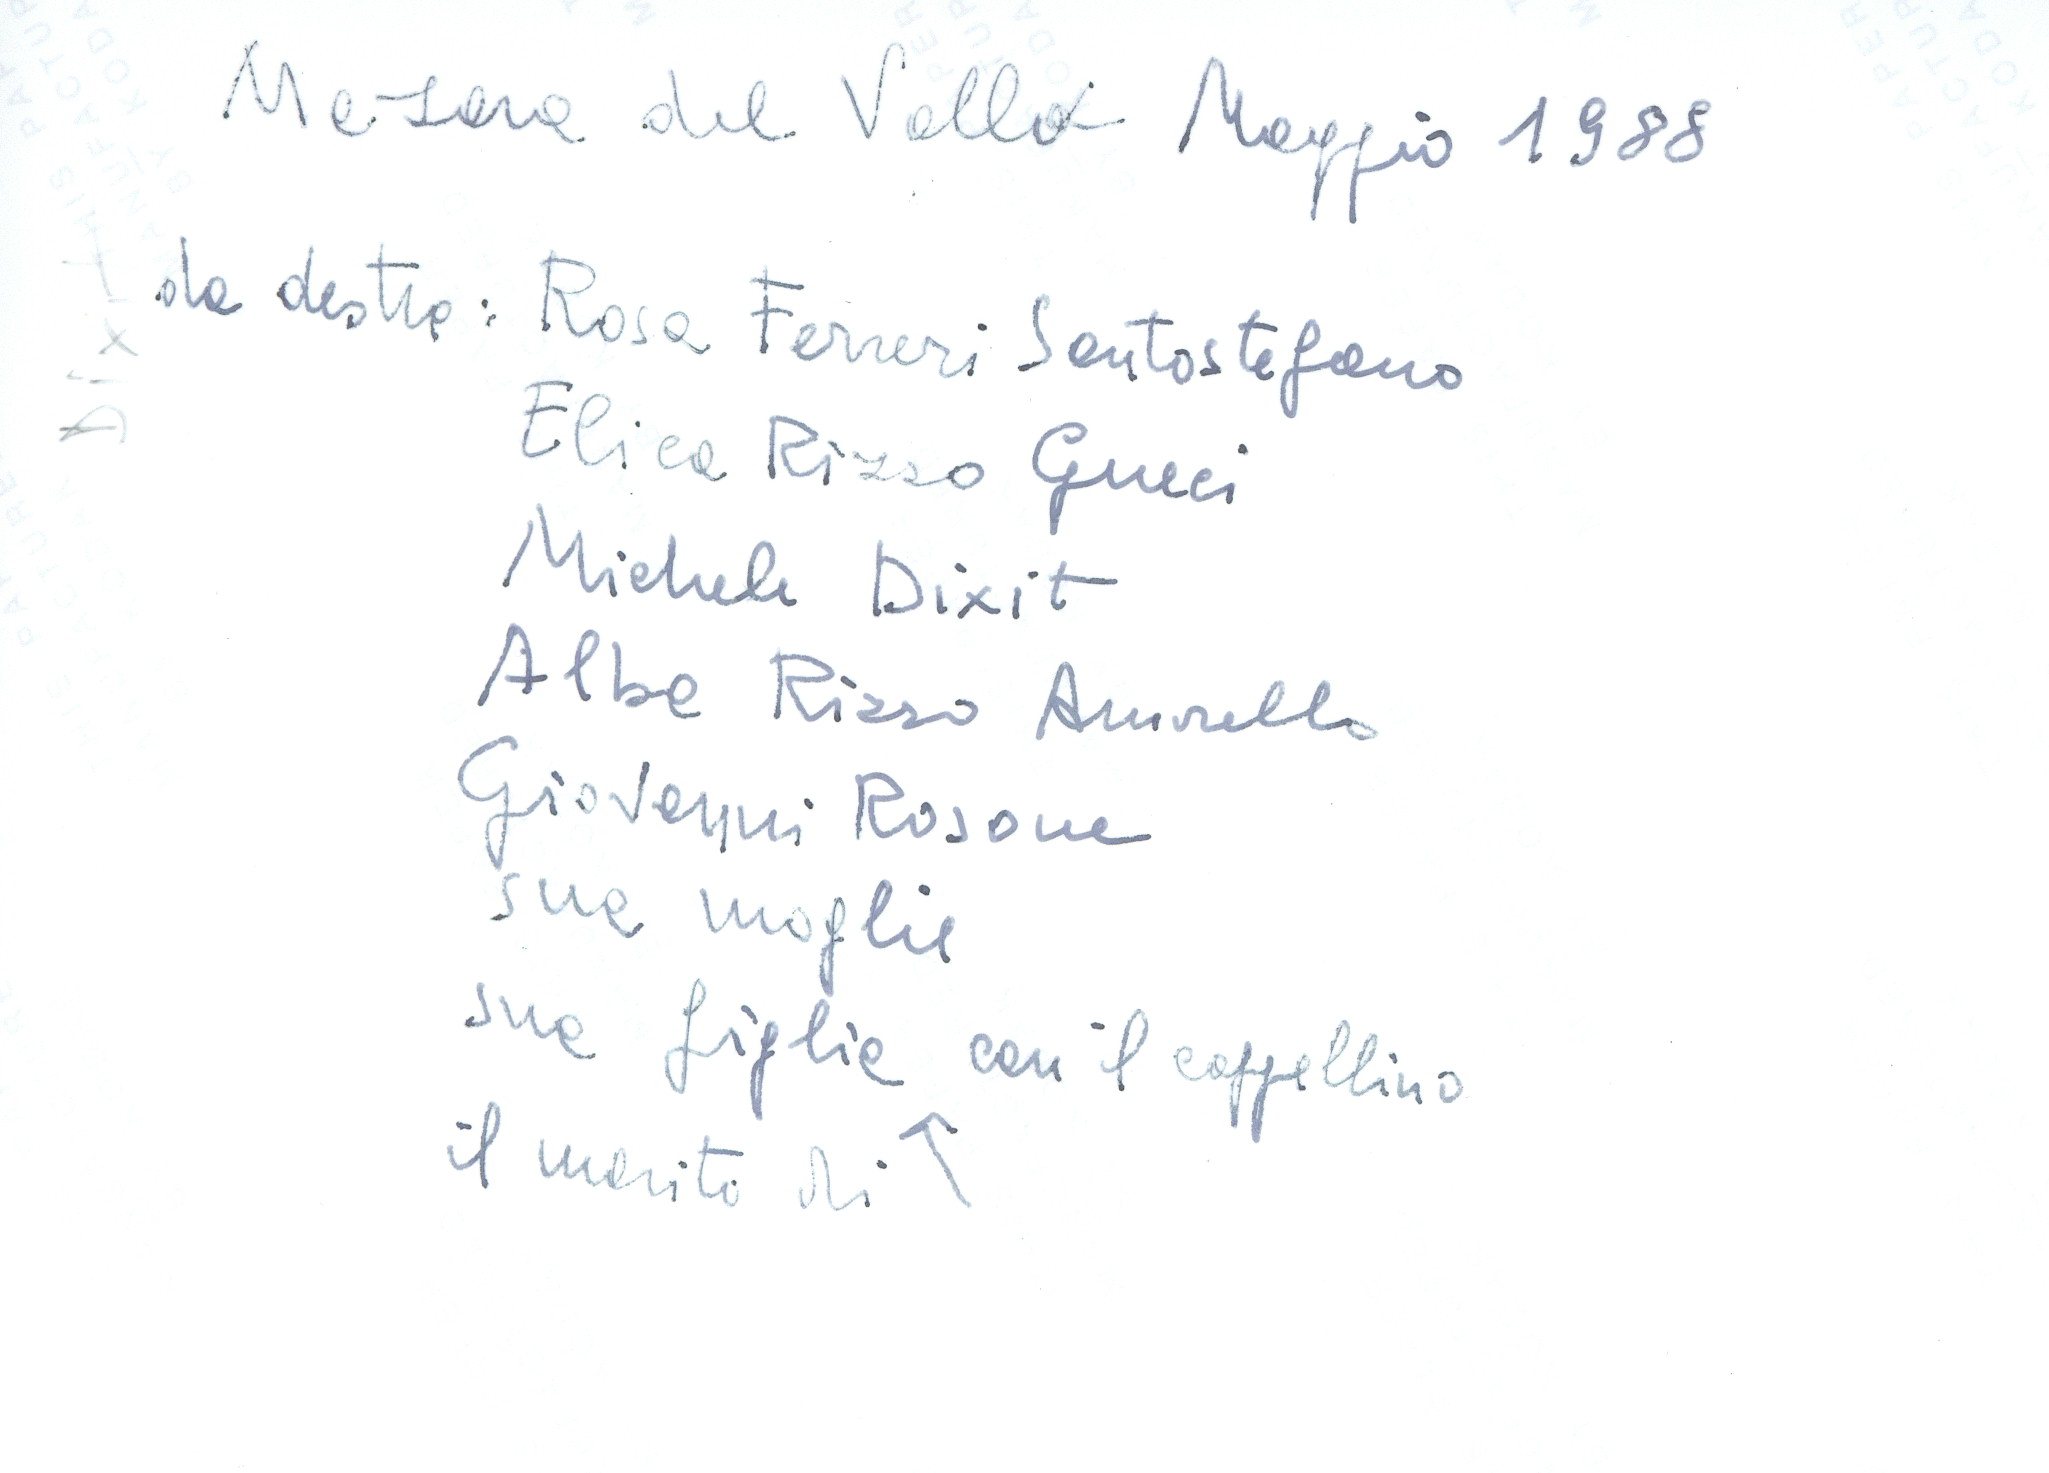 Mazara del Vallo Maggio 1988
da destra: Rosa Ferreri Santostefano
Elica Rizzo Gucci
Michele Dixit
Alba Rizzo Amorello
Giovanni Rosone
sua moglie
sua figlia con il cappellino
il marito di ↖
Dixit